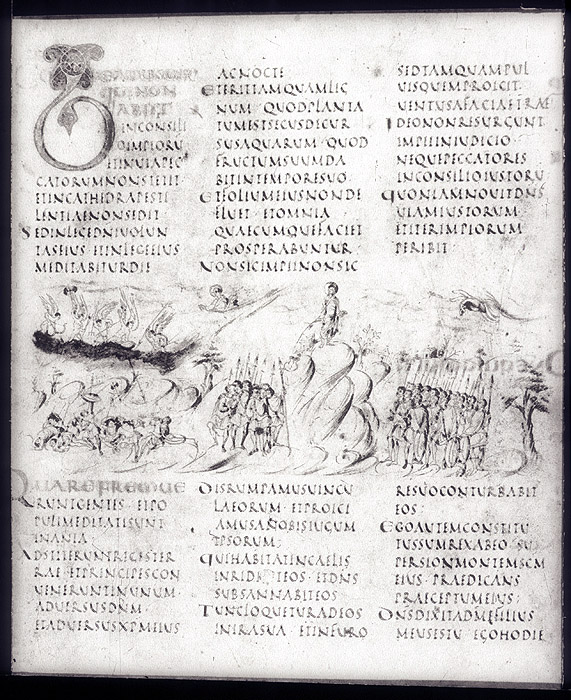 BEATUSUIR
QUI NON
ABIIT
INCONSILI
OIMPIORU
ETINUIAPEC
CATORUMNONSTETIT
ETINCATHEDRAPESTI
LENTIAENONSEDIT
SEDINLEGEDNIUOLUN
TASEIUS ETINLEGEEIUS
MEDITABITURDIE
ACNOCTE
ETERITTAMQUAMLIG
NUM QUODPLANTA
TUMESTSECUSDECUR
SUSAQUARUM QUOD
FRUCTUMSUUMDA
BITINTEMPORESUO
ETFOLIUMEIUSNONDE
FLUET ETOMNIA
QUAECUMQUEFACIET
PROSPERABUNTUR
NONSICIMPIINONSIC
SEDTAMQUAMPUL
UISQUEMPROICIT
UENTUSAFACIETERRAE
IDEONONRESURGUNT
IMPIIINIUDICIO
NEQUEPECCATORES
INCONSILIOIUSTORU
QUONIAMNOUITDNS
UIAMIUSTORUM
ETITERIMPIORUM
PERIBIT
QUAREFREMUE
RUNTGENTES ETPO
PULIMEDITATISUNT
INANIA
ADSTITERUNTREGESTER
RAE ETPRINCIPESCON
UENERUNTINUNUM
ADUERSUSDNM
ETADUERSUSXPMEIUS
DISRUMPAMUSUINCU
LAEORUM ETPROICI
AMUSANOBISIUGUM
IPSORUM
QUIHABITATINCAELIS
INRIDEBITEOS ETDNS
SUBSANNABITEOS
TUNCLOQUETURADEOS
INIRASUA ETINFURO
RESUOCONTURBABIT
EOS
EGOAUTEMCONSTITU
TUSSUMREXABEO SU
PERSIONMONTEMSCM
EIUS PRAEDICANS
PRAECEPTUMEIUS
DNSDIXITADMEFILIUS
MEUSESTU EGOHODIE